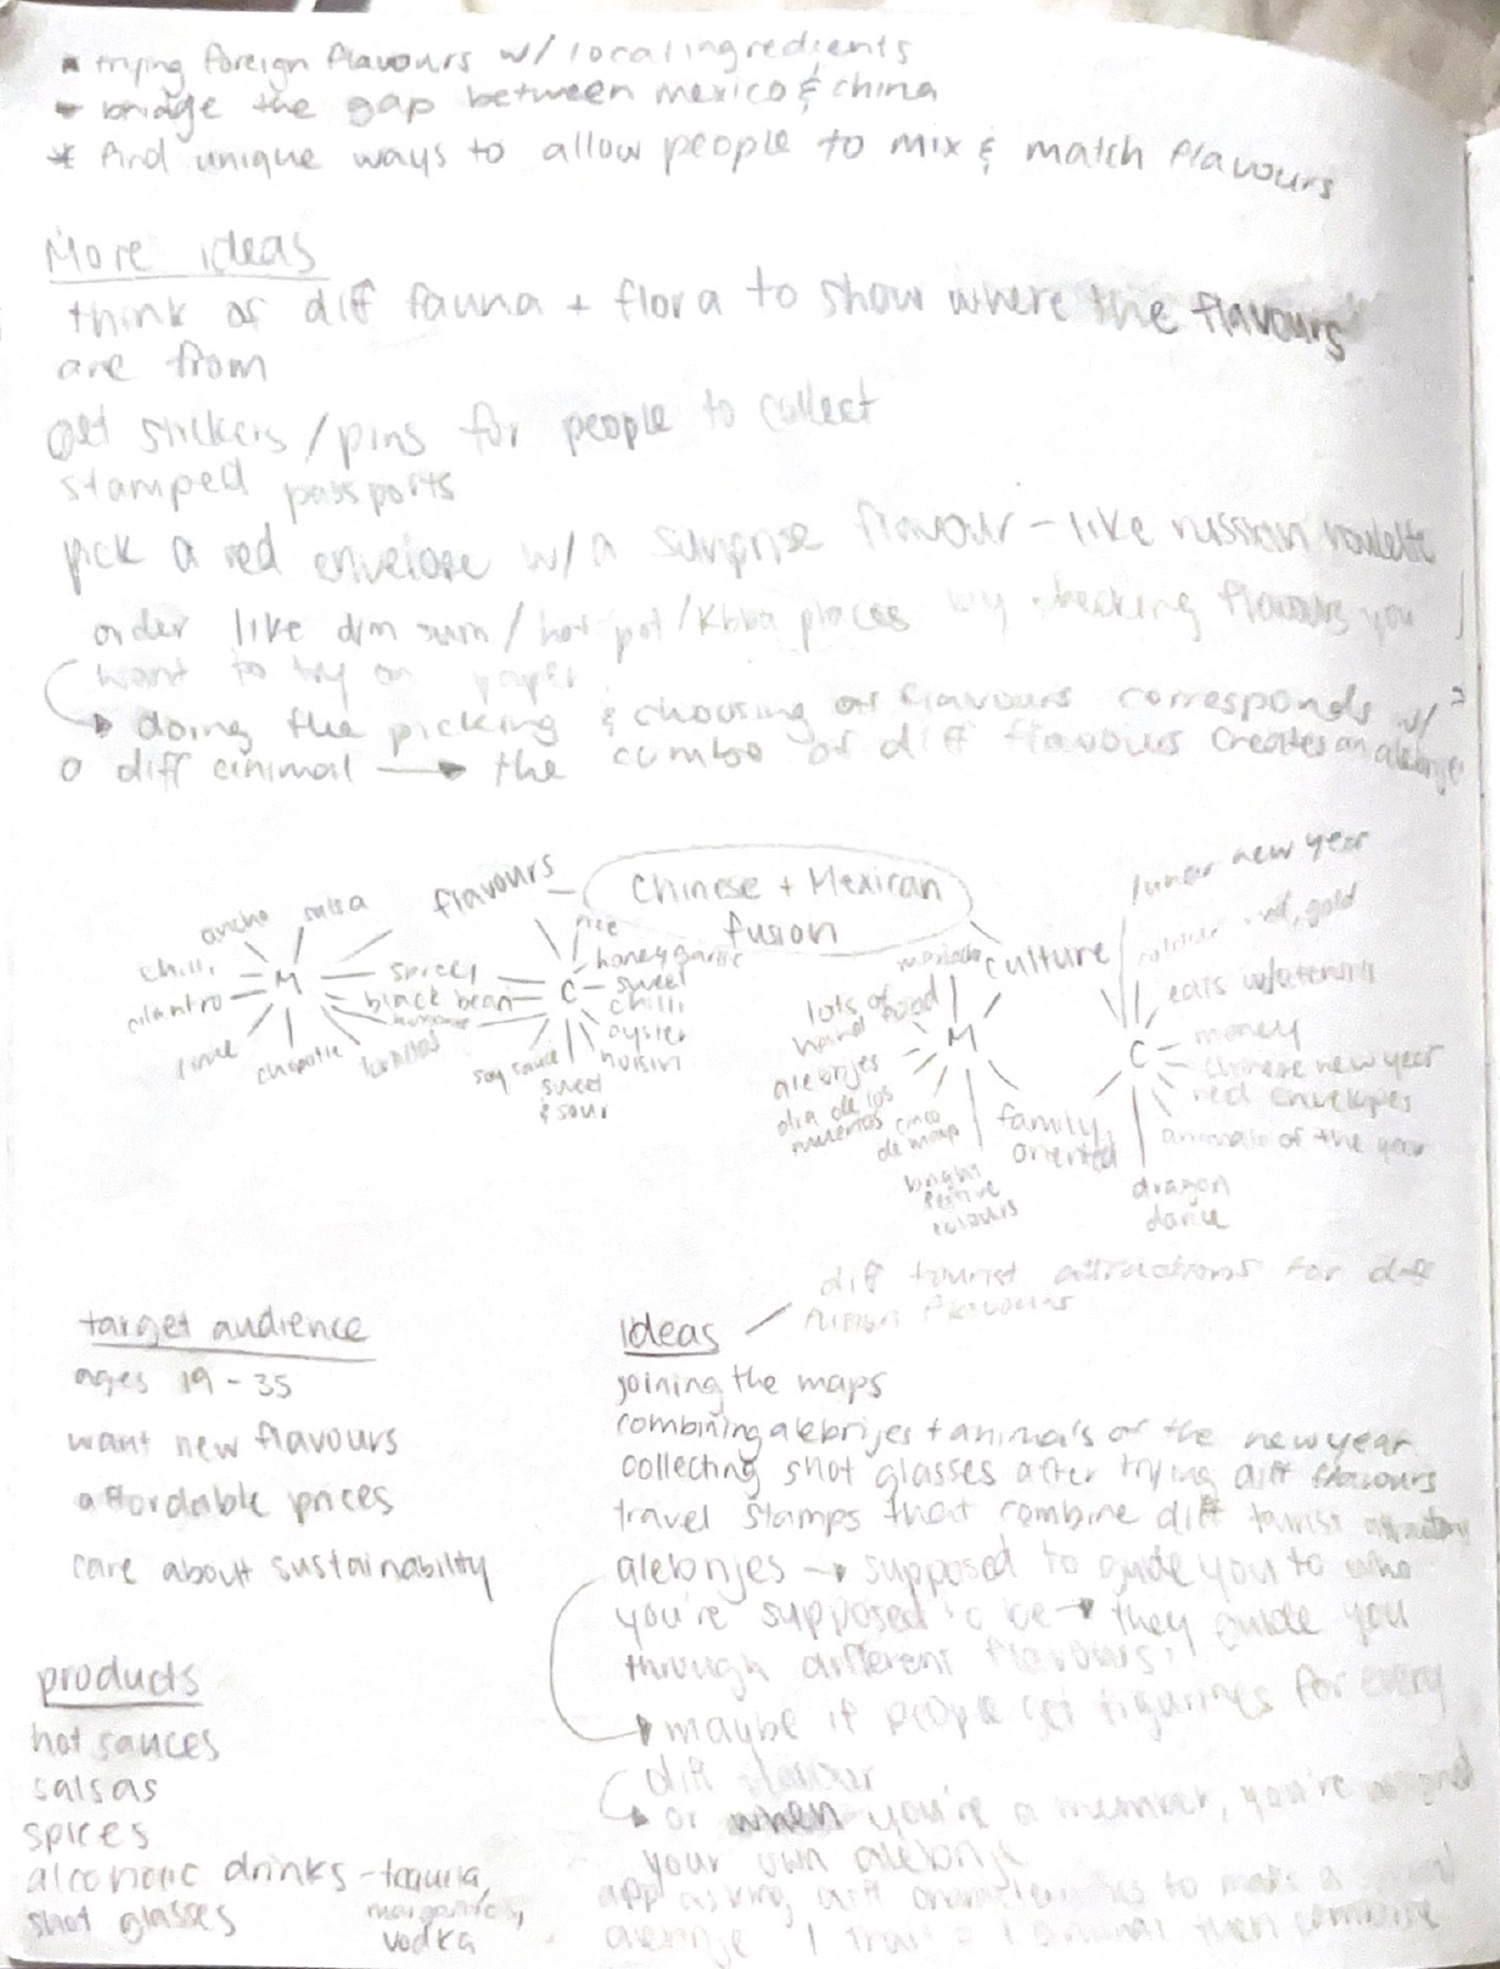 trying foreign flavours w/ local ingredients
bridge the gap between mexico & china
* find unique ways to allow people to mix & match flavours
More ideas
think of diff fauna + flora to show where the flavours
are from
get stickers/pins for people to collect
stamped passports
pick a red envelope w/ a surprise flavour - like russian roulette
order like dim sum/hot pot/kbbq places by checking flavours you
want to try on paper
→ doing the picking & choosing of flavours corresponds w/
a diff animal → the combo of diff flavours creates an alebrije
Chinese + Mexican
fusion
flavours
M
ancho
salsa
chilli
cilantro
lime
chipotle
tortillas
spicey
black bean
C
rice
honey garlic
sweet
chilli
oyster
hoisin
soy sauce
sweet
& sour
culture
M
mariachi
lots of
hand food
alebrijes
dia de los
muertos
cinco
de mayo
bright
festive
colours
family
oriented
C
lunar new year
red, gold
eats w/
money
chinese new year
red envelopes
animals of the year
dragon
dance
target audience
ages 19-35
want new flavours
affordable prices
care about sustainability
products
hot sauces
salsas
spices
alcoholic drinks - tequila,
margaritas,
vodka
shot glasses
ideas
diff tourist attractions for diff
fusion flavours
joining the maps
combining alebrijes + animals of the new year
collecting shot glasses after trying diff flavours
travel stamps that combine diff tourist attractions
alebrijes → supposed to guide you to who
you're supposed to be → they guide you
through different flavours
→ maybe if people get figurines for every
diff flavour
→ or when you're a member, you're
your own alebrije
app asking diff characteristics to make a
alebrije 1 trait = 1 animal then combine